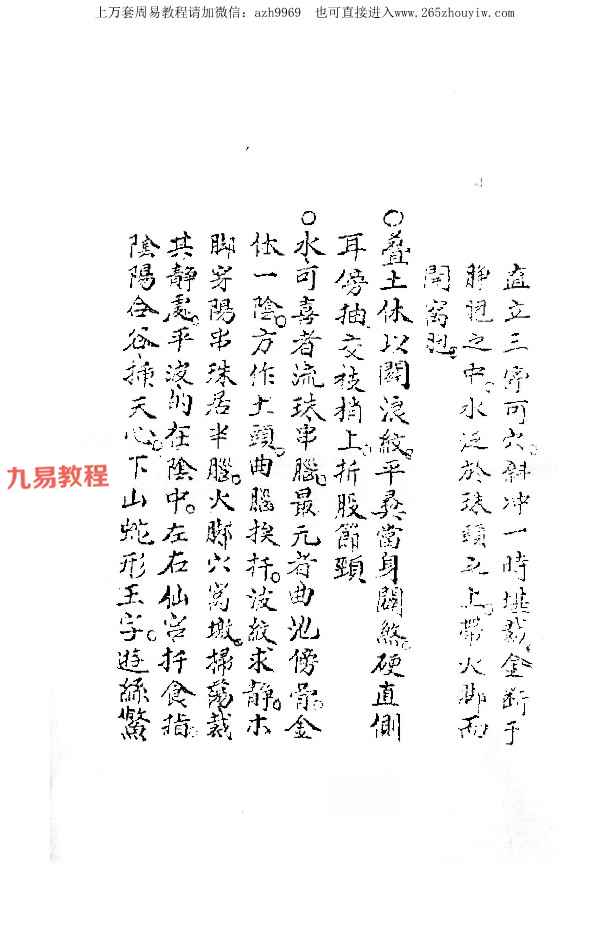 上万套周易教程请加微信：azh9969 也可直接进入www.265zhouyiw.com
直立三停可穴。斜冲一時堪裁。金断于
睁肥之中。水泛於珠頭之上。带火脚而
開窩肥。
○叠土休以闊浪紋。平尋當身闊煞。硬直側
耳傍抽。交枝梢上。折股節頸
○水可喜者流珠串腦。最元者曲池傍骨。金
休一陰。方作土頭。曲腦挨扦。波紋求静。木
脚穿陽串珠居半腦。火脚穴窩墩。掃蕩裁
其静處。平波的在陰中。左右仙宫扦食指。
陰陽合谷揷天心。下山蛇形王字。遊絲鱉
九易教程